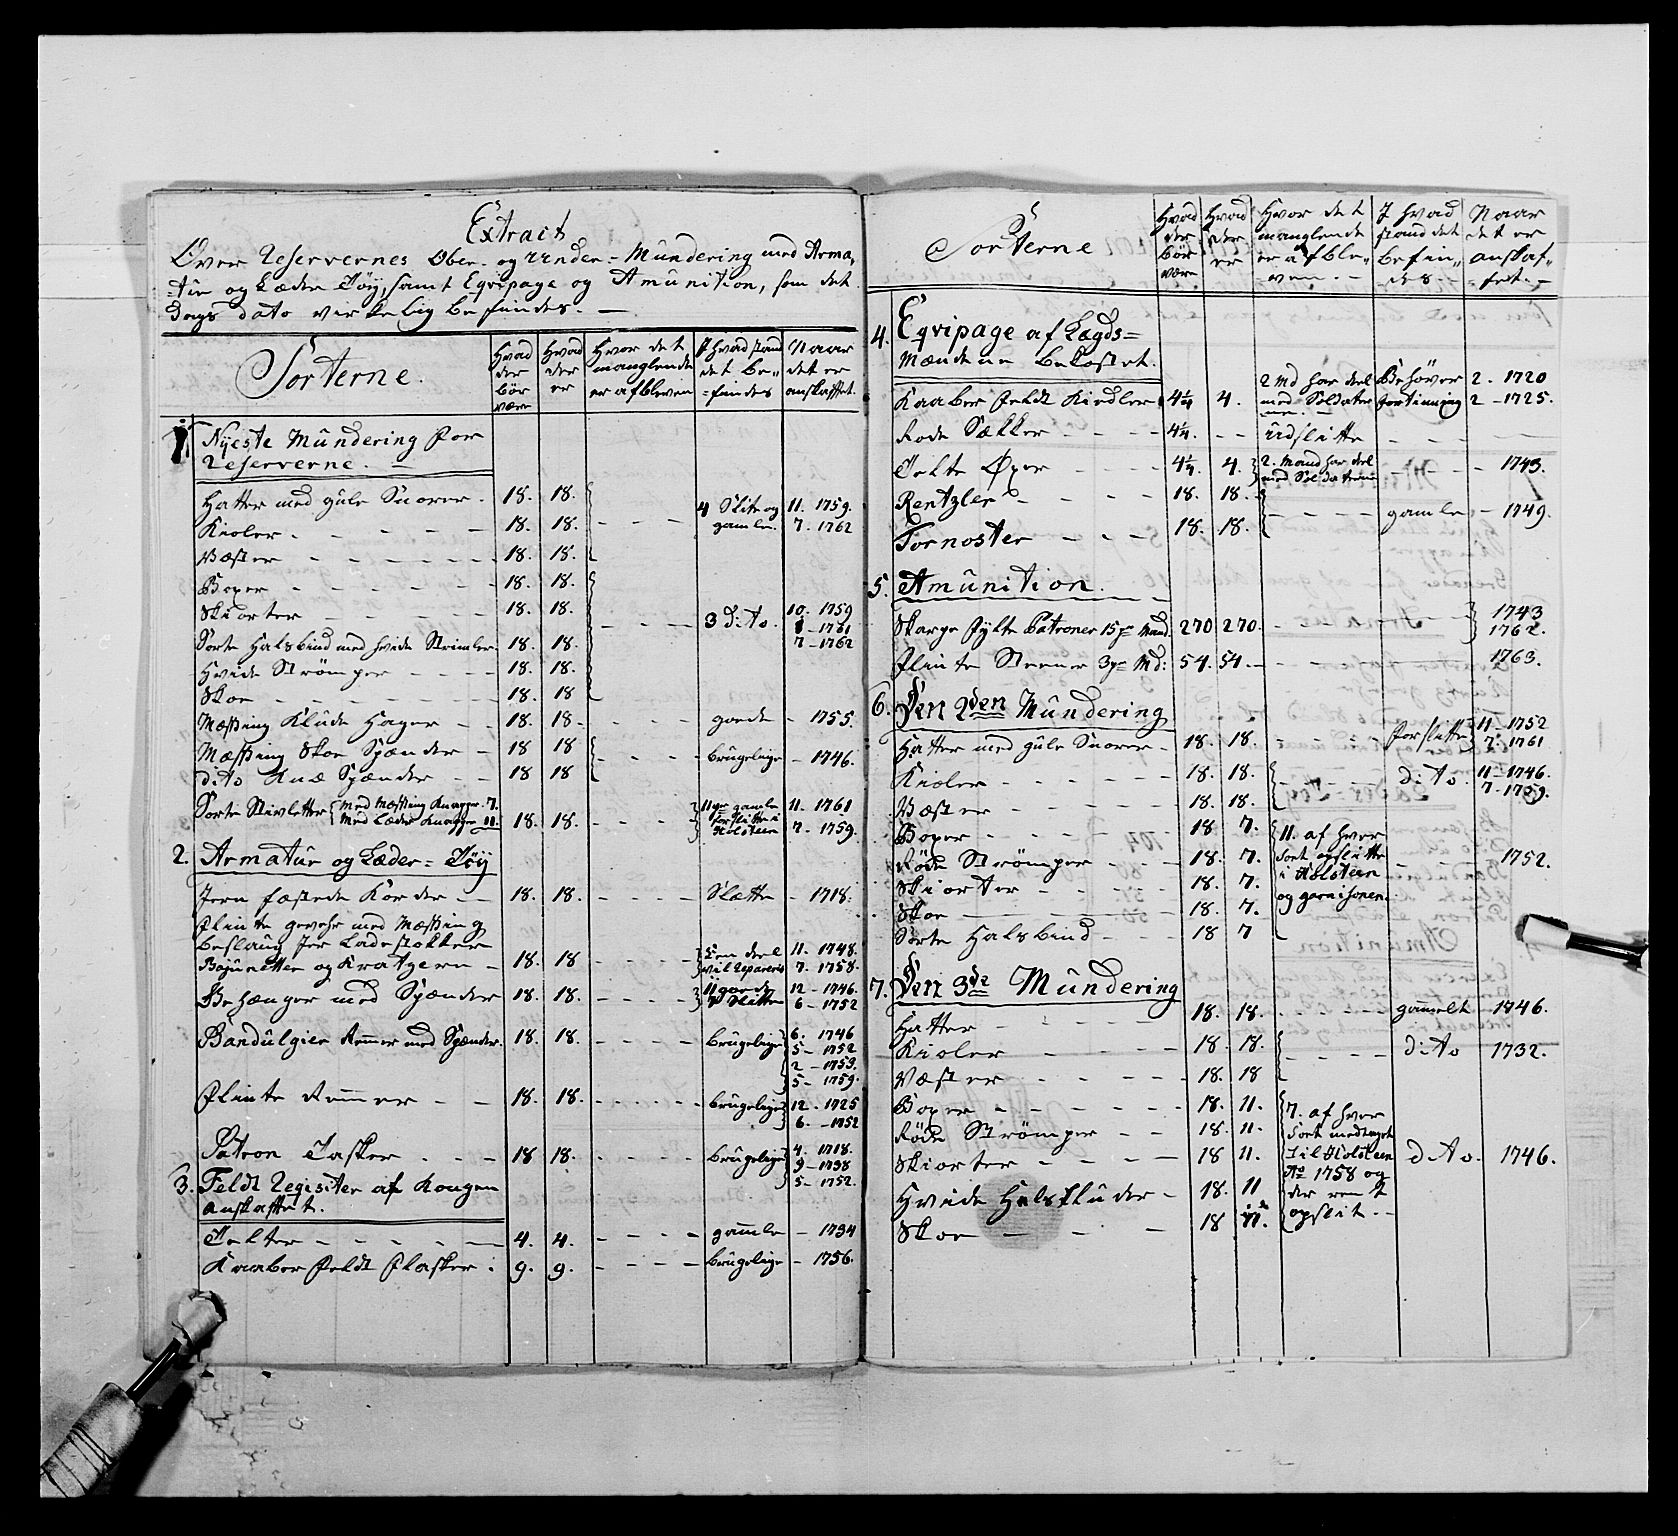 Extract
Over Reservernes Ober- og Under-Mundering med Arma,
tur og Læder Töy, samt Eqvipage og Amunition, som det
Dags dato virkelig befindes. —
Sorterne.
Hvad der bör være
Hvad der er
Hvor det manglende er afbleven
J hvad stand det be- findes
Naar det er anskaffet.
1. Nyeste Mundering for
Reserverne. —
Hatter med gule Snorer. 18. 18. 4 Slite og 11. 1759.
Kioler 18. 18. gamle. 7. 1762
Væster 18. 18.
Boxer 18. 18.
Skiorter 18. 18. 10. 1759
Sorte Halsbind med hvide Strimler 18. 18. 3 dito. 1 - 1761
7 - 1762
Hvide Strömper 18. 18.
Skoe 18. 18
Mæssing Klude Hager 18. 18. goede - 1755.
Mæssing Skoe Spænder 18 18 brugelige - 1746.
dito Knæ Spænder 18 18
Sorte Stivletter Med Mæssing Knapper 7. 11 gr gamle 11. 1761
Med Læder Knapper 11. 18. 18. forslitte i Holsteen 7. 1759.
2. Armatur og Læder= Töy
Jern fæstede Korder 18. 18. Slætte - 1718.
Flinte gevehr med Mæssing
beslaug Jer Ladestokker
Bajunetter og Kratzern 18. 18 Een deel 11. 1748.
vil repareris 7. 1758.
Gehænger med Spænder 18. 18. 11 goede 12 - 1746.
7 Slitte 6 - 1752
Bandulgier Remmer med Spænder. 18. 18. brugelige 6. 1746
5 - 1752
2 - 1753.
5 - 1759.
Flinte Remmer 18. 18. brugelige 12. 1725
6. - 1752
Patron Tasker 18 18. brugelige 4. 1718.
9 - 1738
5 - 1752.
3. Feldt Reqisiter af Kongen
anskaffet.
Telter 4. 4. gamle - 1734
Kaaber Feldt Flasker. 9. 9. brugelige - 1756.
Sorterne
Hvad der bör være
Hvad der er
Hvor det manglende er afble- ven. -
J hvad stand det befin,, des -
Naar det er anskaf,, fet. -
4. Eqvipage af Lægds=
Mændene bekostet.
Kaaber Feldt Kiedler 4½ 4. 2 Md har deel med Soldater ne. - Behöver fortinning 2. 1720
2 - 1725.
Fode Sækker 4½. - - Udslitte
Telte Öxer 4½. 4. 2. Mand har deel - 1743.
med Soldaterne
Rentzler 18. 18. gamle - 1749.
Tornoster 18. 18.
5. Amunition.
Skarpe fylte Patroner 15 pr Mand. 270 270. 1743
1762.
Flinte Steener 3 pr Md: 54. 54. 1763.
6. Den 2den Mundering
Hatter med gule Snorer 18. 18. forslitte 11 - 1752
7. 1761
Kioler 18. 18. dito. 11 - 1746.
Væster 18. 18. 7. 1759.
Boxer 18 7. 11. af hver
Röde Strömper 18. 7. Sort opslitte 1752.
Skiorter 18. 7. i Holsteen
Skoe 18. 7. og garnisonen.
Sorte Halsbind 18. 7
7. Den 3de Mundering
Hatter 18. 18. gammelt - 1746.
Kioler 18. 18. dito 1732.
Væster 18. 18
Boxer 18. 11. 7. af hver
Röde Strömper 18. 11. Sort medtaget
Skiorter 18 11. Til Holsteen dito. 1746.
Ao 1758 og
Hvide Halskluder 18. 11 der rent
Skoe 18 11. opslit. -